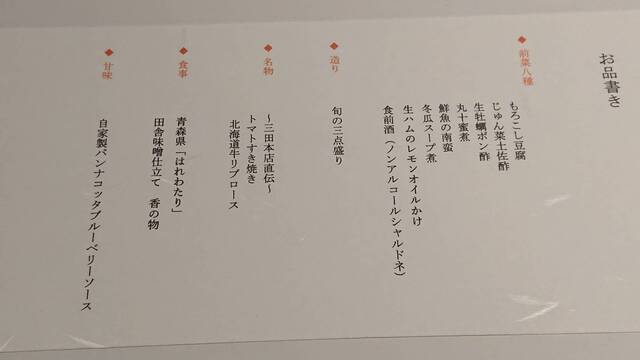 お品書き
◆前菜八種
もろこし豆腐
じゅん菜土佐酢
生牡蠣ポン酢
丸十蜜煮
鮮魚の南蛮
冬瓜スープ煮
生ハムのレモンオイルかけ
食前酒（ノンアルコールシャルドネ）
◆造り
旬の三点盛り
◆名物
～三田本店直伝～
トマトすき焼き
北海道牛リブロース
◆食事
青森県「はれわたり」
田舎味噌仕立て 香の物
◆甘味
自家製パンナコッタブルーベリーソース